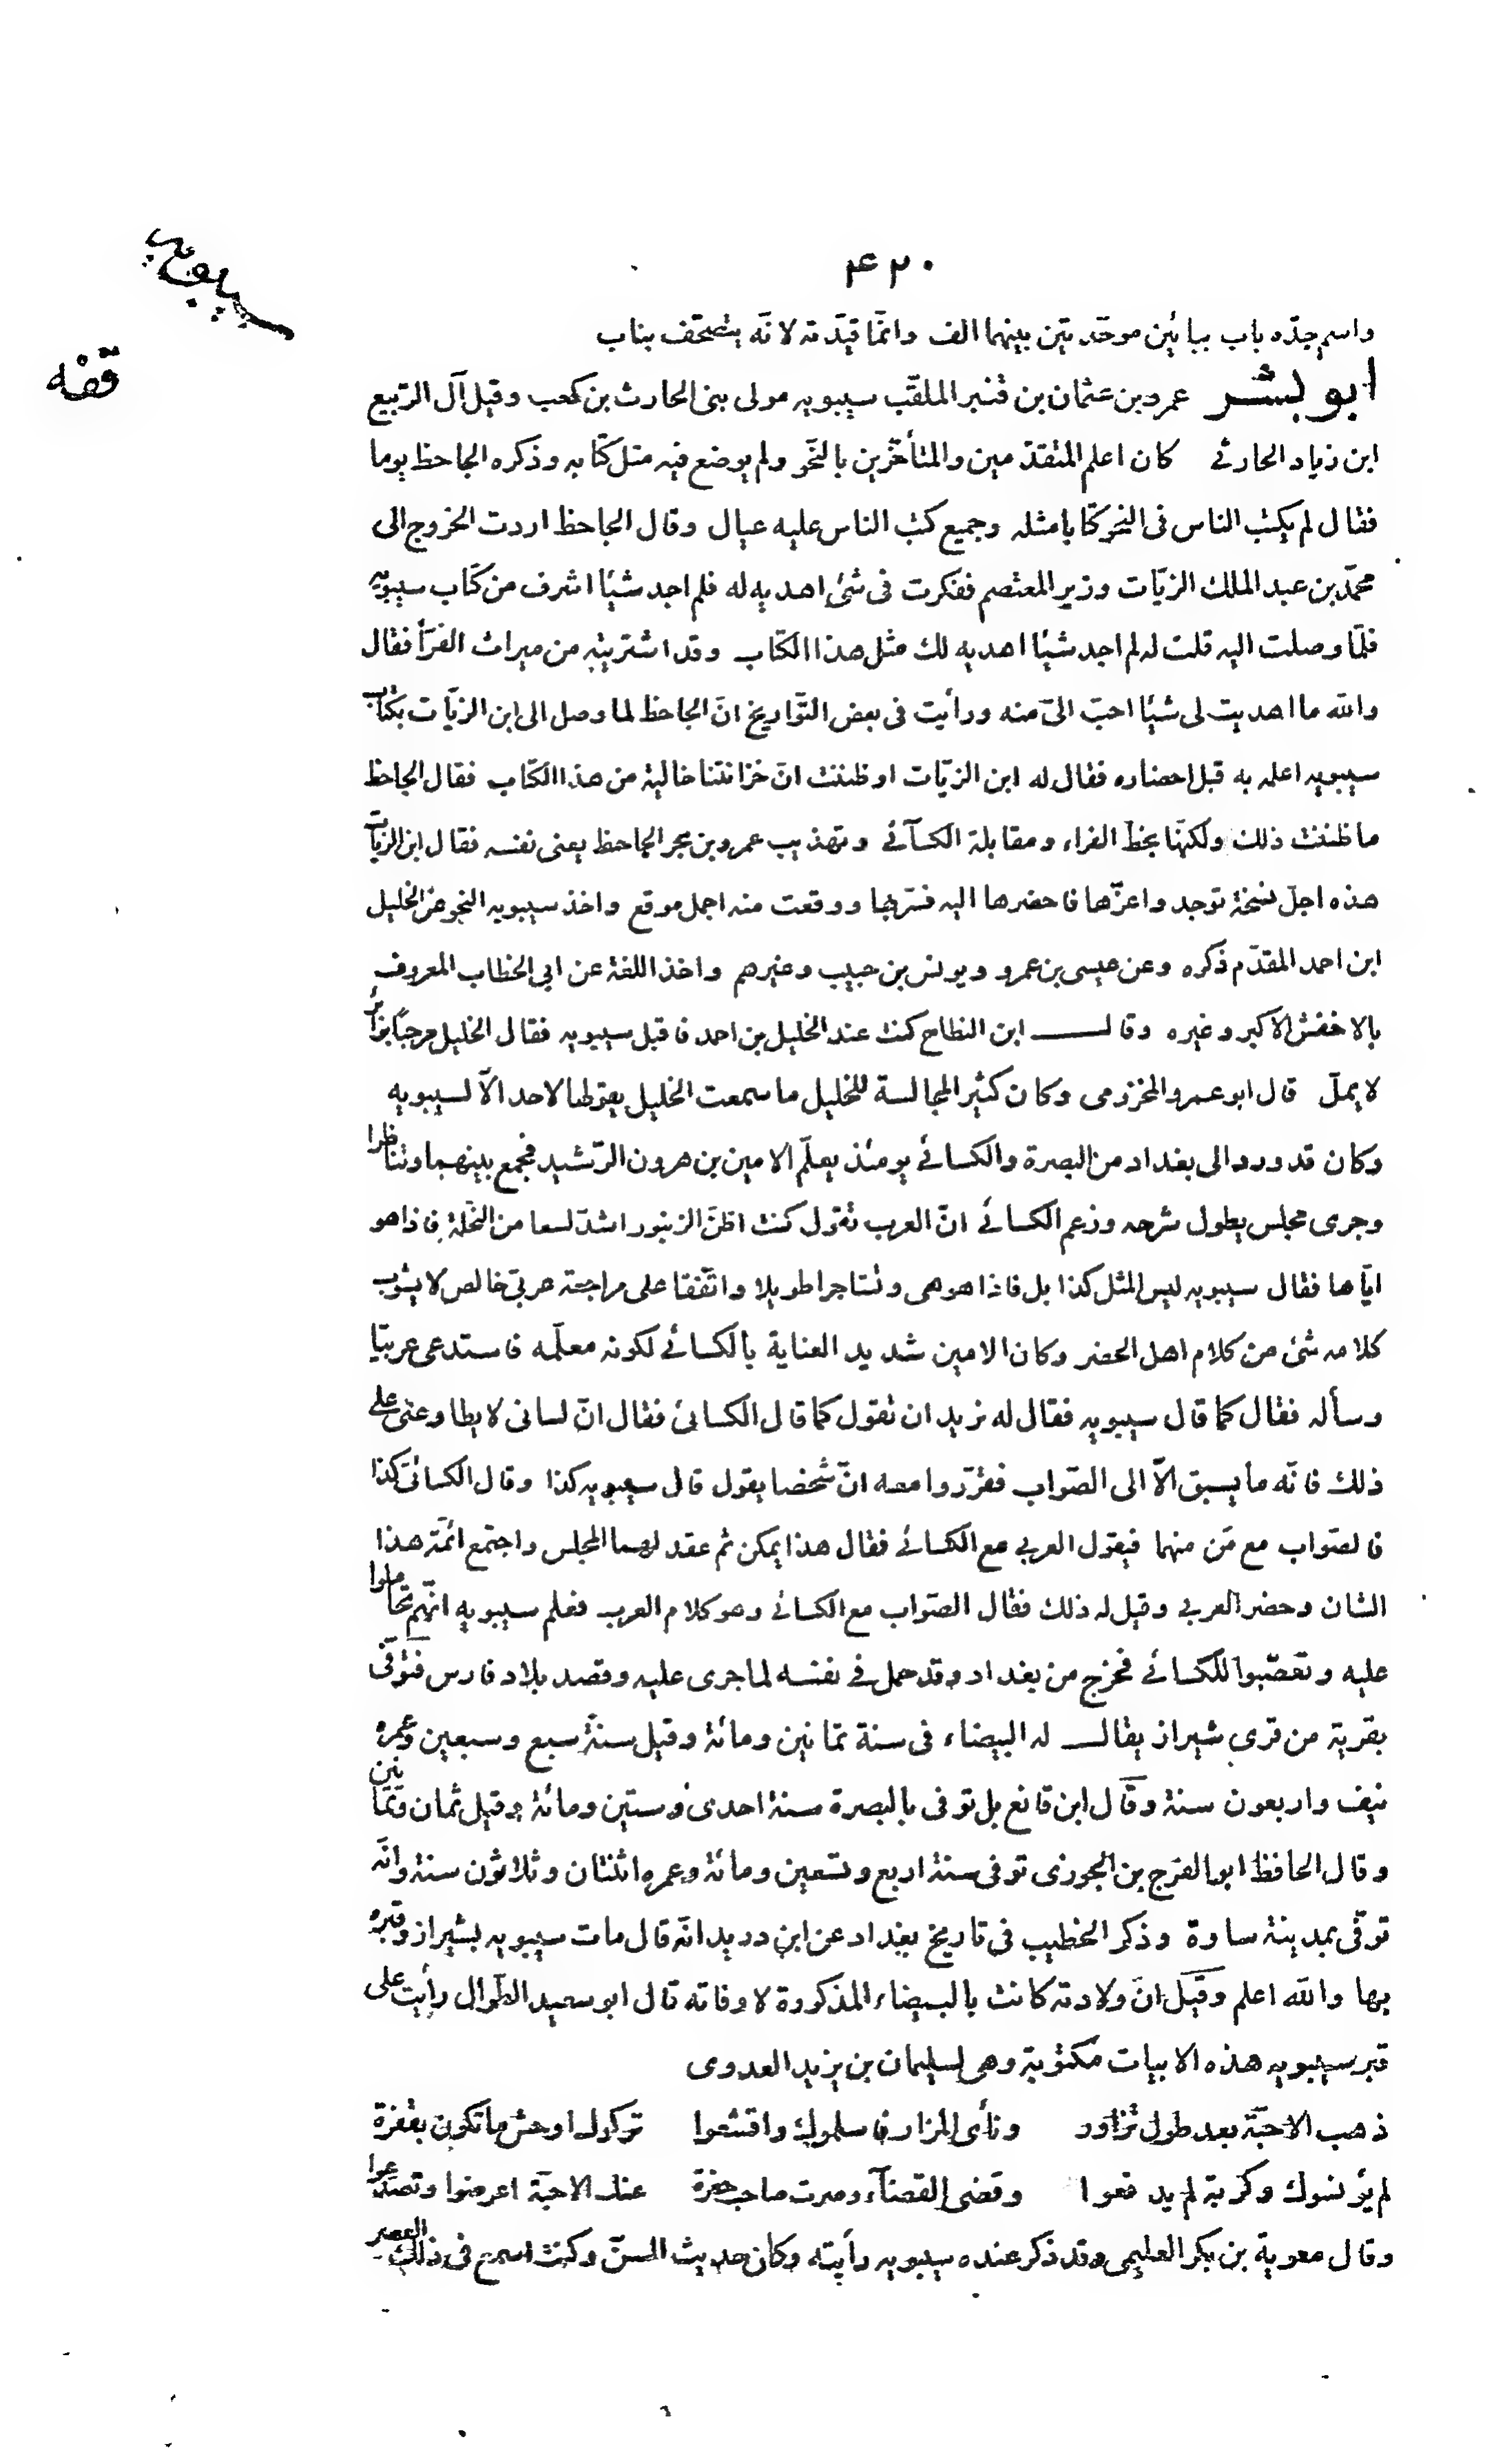 ٤٢٠
سيبويه
قفه
واسم جدّه باب ببائين موحّدتين بينهما الف وانّما قيّدته لانّه يتصحّف بناب
ابو بشر عمرو بن عثمان بن قنبر الملقّب سيبويه مولى بنى الحارث بن كعب وقيل آل الرّبيع
ابن زياد الحارثي كان اعلم المتقدّمين والمتأخّرين بالنّحو ولم يوضع فيه مثل كتابه وذكره الجاحظ يوما
فقال لم يكتب الناس فى النحو كتابا مثله وجميع كتب الناس عليه عيال وقال الجاحظ اردت الخروج الى
محمّد بن عبد الملك الزيّات وزير المعتصم ففكرت فى شئ اهديه له فلم اجد شيئا اشرف من كتاب سيبويه
فلمّا وصلت اليه قلت له لم اجد شيئا اهديه لك مثل هذا الكتاب وقد اشتريته من ميراث الفرّأ فقال
والله ما اهديت لى شيئا احبّ الىّ منه ورأيت فى بعض التّواريخ انّ الجاحظ لما وصل الى ابن الزيّات بكتاب
سيبويه اعلمه به قبل احضاره فقال له ابن الزيّات اوظننت انّ خزانتنا خالية من هذا الكتاب فقال الجاحظ
ما ظننت ذلك ولكنّها بخطّ الفراء ومقابلة الكسآئي وتهذيب عمرو بن بحر الجاحظ يعنى نفسه فقال ابن الزيات
هذه اجلّ نسخة توجد واعزّها فاحضرها اليه فسرّ بها ووقعت منه اجمل موقع واخذ سيبويه النحو عن الخليل
ابن احمد المقدّم ذكره وعن عيسى بن عمرو ويونس بن حبيب وغيرهم واخذ اللغة عن ابي الخطاب المعروف
بالاخفش الاكبر وغيره وقال ابن النطاح كنت عند الخليل بن احمد فاقبل سيبويه فقال الخليل مرحبًا بزائر
لا يملّ قال ابو عمرو المخزومى وكان كثير المجالسة للخليل ما سمعت الخليل يقولها لاحد الّا لسيبويه
وكان قد ورد الى بغداد من البصرة والكسائي يومئذ يعلّم الامين بن هرون الرّشيد فجمع بينهما وتناظرا
وجرى مجلس يطول شرحه وزعم الكسائي انّ العرب تقول كنت اظنّ الزنبور اشدّ لسعا من النّحلة فاذا هو
ايّاها فقال سيبويه ليس المثل كذا بل فاذا هو هى وتشاجرا طويلا واتّفقا على مراجعة عربىّ خالص لا يشوب
كلامه شئ من كلام اهل الحضر وكان الامين شديد العناية بالكسائي لكونه معلّمه فاستدعى عربيّا
وسأله فقال كما قال سيبويه فقال له نريد ان تقول كما قال الكسائى فقال انّ لسانى لا يطاوعنى على
ذلك فانّه ما يسبق الّا الى الصّواب فقرّروا معه انّ شخصا يقول قال سيبويه كذا وقال الكسائىّ كذا
فالصّواب مع مَن منهما فيقول العربي مع الكسائي فقال هذا يمكن ثم عقد لهما المجلس واجتمع ائمّة هذا
الشان وحضر العربي وقيل له ذلك فقال الصّواب مع الكسائي وهو كلام العرب فعلم سيبويه انّهم تحاملوا
عليه وتعصّبوا للكسائي فخرج من بغداد وقد حمل في نفسه لما جرى عليه وقصد بلاد فارس فتوفّى
بقرية من قرى شيراز يقال له البيضاء فى سنة ثمانين ومائة وقيل سنة سبع وسبعين وعمره
نيف واربعون سنة وقال ابن قانع بل توفى بالبصرة سنة احدى وستين ومائة وقيل ثمان وثمانين
وقال الحافظ ابو الفرج بن الجوزى توفى سنة اربع وتسعين ومائة وعمره اثنتان وثلاثون سنة وانّه
توفّى بمدينة ساوة وذكر الخطيب فى تاريخ بغداد عن ابن دريد انّه قال مات سيبويه بشيراز وقبره
بها والله اعلم وقيل انّ ولادته كانت بالبيضاء المذكورة لا وفاته قال ابو سعيد الطّوال رأيت على
قبر سيبويه هذه الابيات مكتوبة وهى لسليمان بن يزيد العدوى
ذهب الاحبّة بعد طول تزاور ونأى المزار فاسلموك واقشعوا تركوك اوحش ما تكون بقفرة
لم يؤنسوك وكربة لم يدفعوا وقضى القضآء وصرت صاحب حفرة عنك الاحبّة اعرضوا وتصدّعوا
وقال معوية بن بكر العليمى وقد ذكر عنده سيبويه رأيته وكان حديث السنّ وكنت اسمع فى ذلك العصر